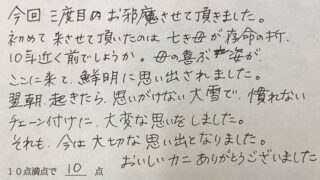 今回 三度目のお邪魔させて頂きました。
初めて来させて頂いたのは 亡き母が存命の折、
10年近く前でしょうか。母の喜ぶ姿が、
ここに来て、鮮明に思い出されました。
翌朝、起きたら、思いがけない大雪で、慣れない
チェーン付けに、大変な思いをしました。
それも、今は大切な思い出となりました。
おいしいカニ ありがとうございました
10点満点で 10 点